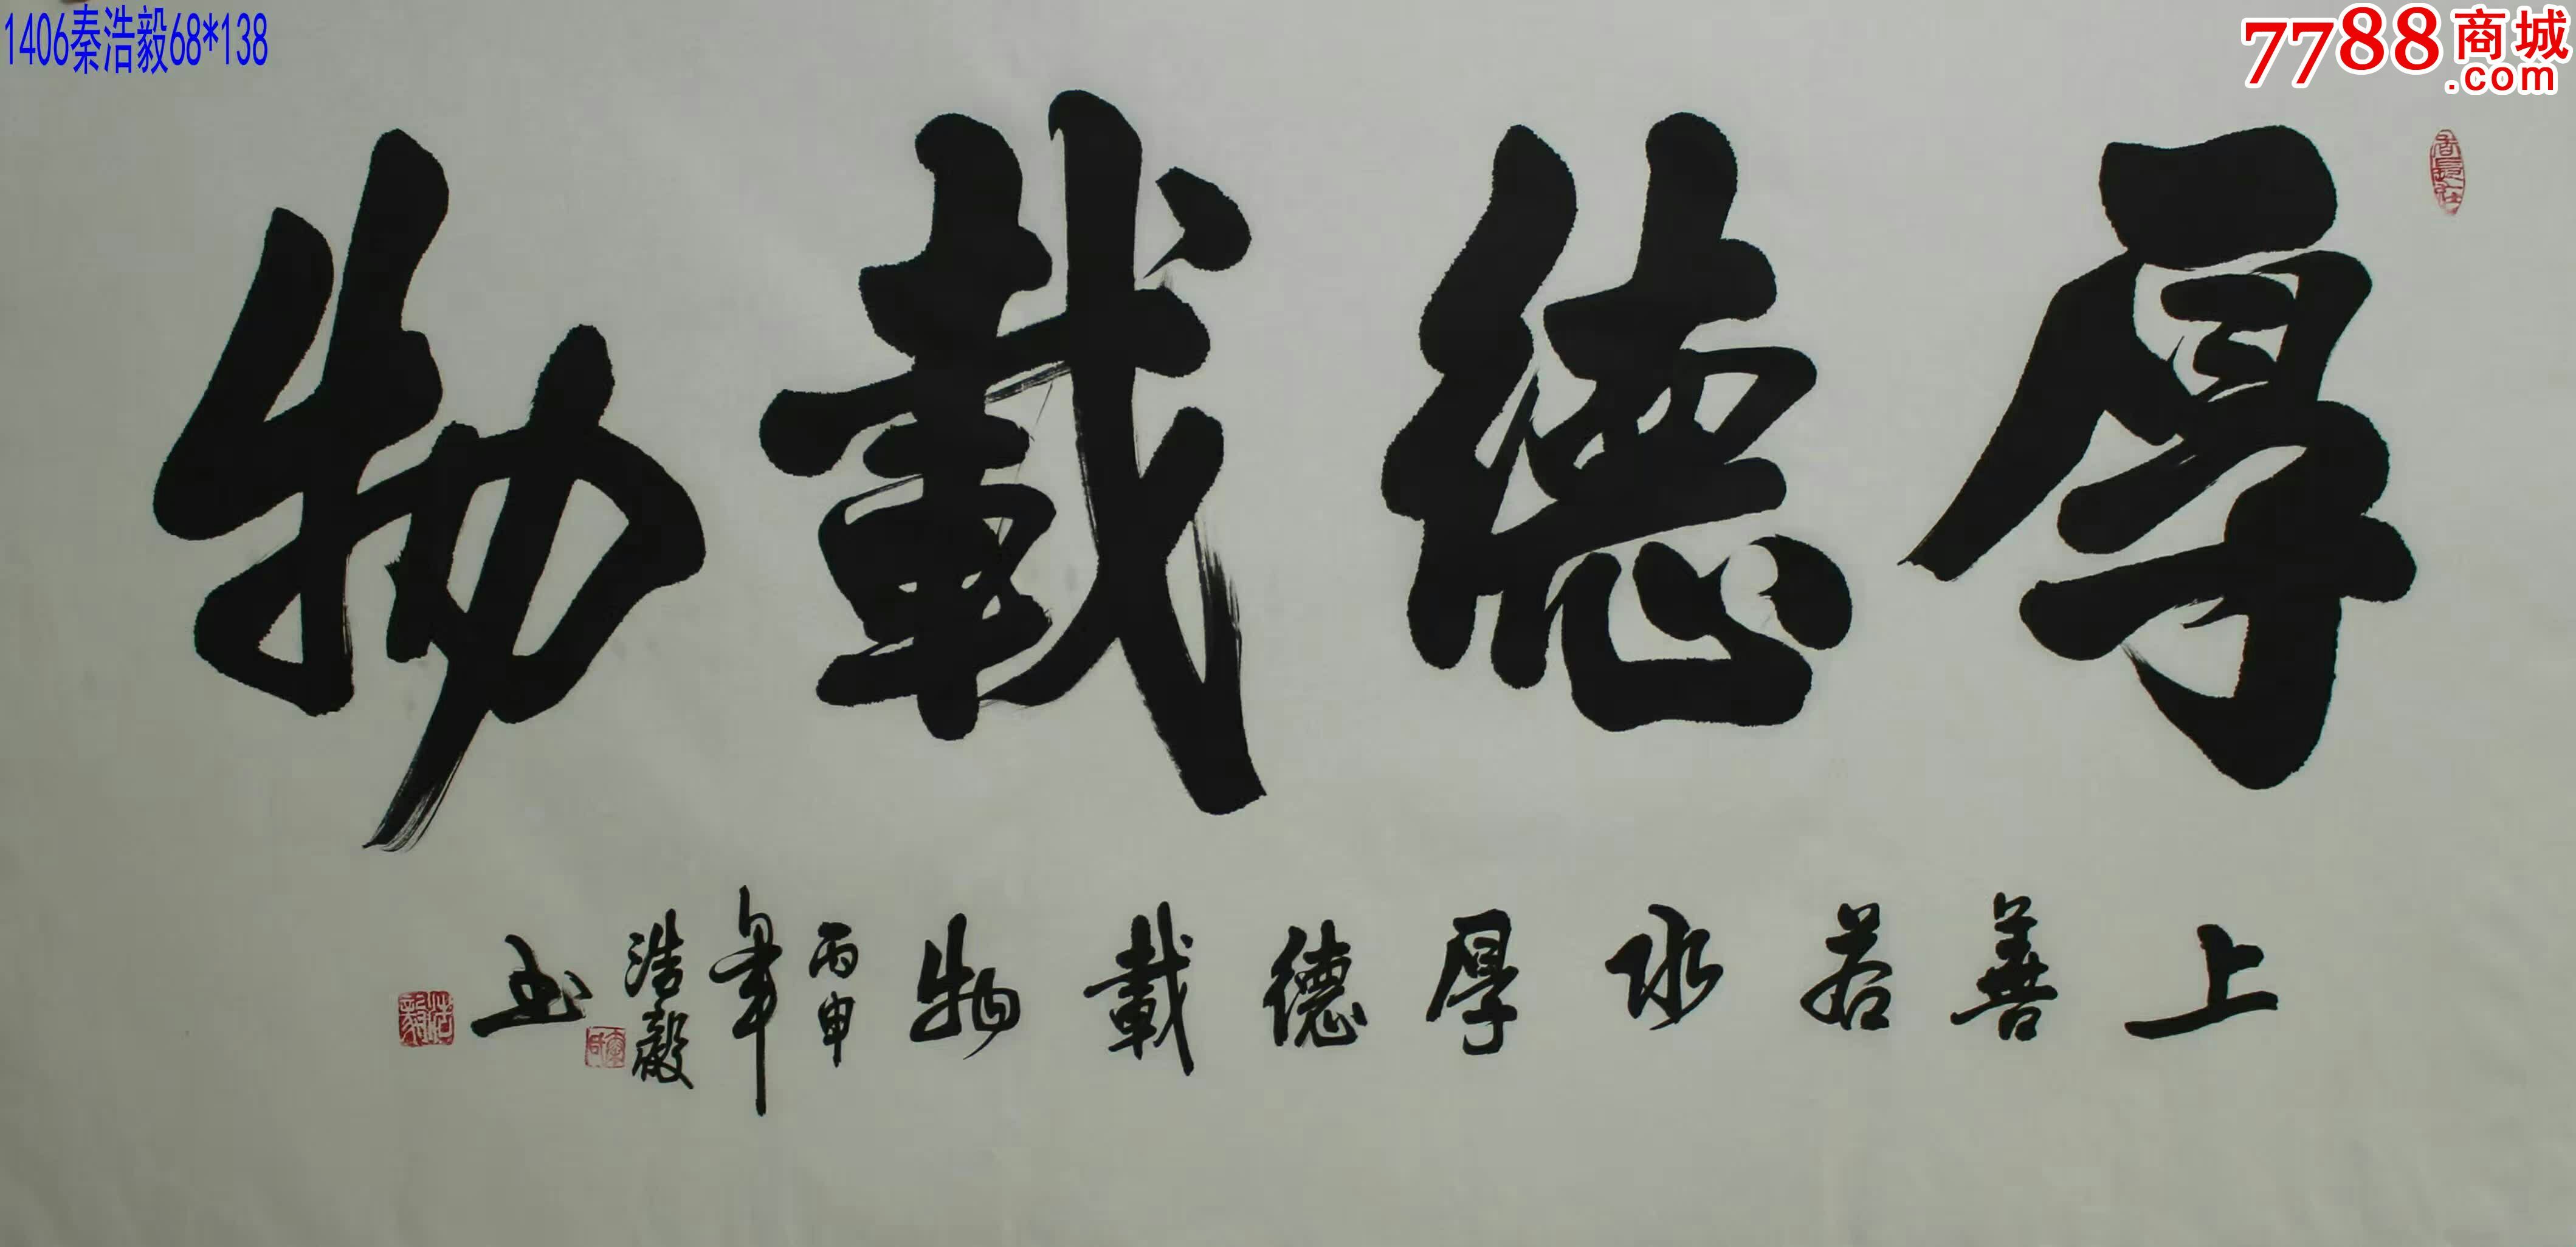 1406秦浩毅68*138
7788商城
.com
厚德載物
上善若水厚德載物丙申年浩毅书
浩毅